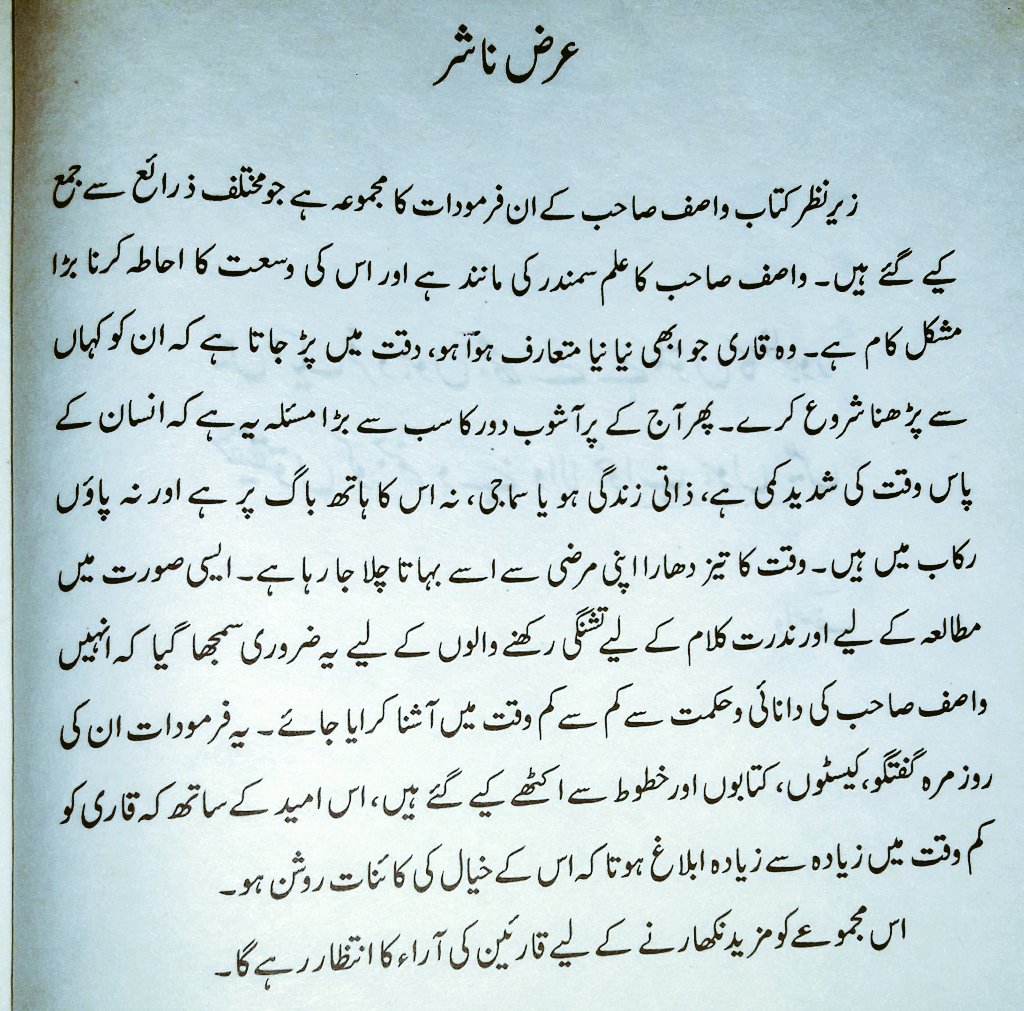 عرض ناشر
زیر نظر کتاب واصف صاحب کے ان فرمودات کا مجموعہ ہے جو مختلف ذرائع سے جمع
کیے گئے ہیں۔ واصف صاحب کا علم سمندر کی مانند ہے اور اس کی وسعت کا احاطہ کرنا بڑا
مشکل کام ہے۔ وہ قاری جو ابھی نیا نیا متعارف ہوا ہو، دقت میں پڑ جاتا ہے کہ ان کو کہاں
سے پڑھنا شروع کرے۔ پھر آج کے پرآشوب دور کا سب سے بڑا مسئلہ یہ ہے کہ انسان کے
پاس وقت کی شدید کمی ہے، ذاتی زندگی ہو یا سماجی، نہ اس کا ہاتھ باگ پر ہے اور نہ پاؤں
رکاب میں ہیں۔ وقت کا تیز دھارا اپنی مرضی سے اسے بہاتا چلا جا رہا ہے۔ ایسی صورت میں
مطالعہ کے لیے اور ندرت کلام کے لیے تشنگی رکھنے والوں کے لیے یہ ضروری سمجھا گیا کہ انہیں
واصف صاحب کی دانائی و حکمت سے کم سے کم وقت میں آشنا کرایا جائے۔ یہ فرمودات ان کی
روزمرہ گفتگو، کیسٹوں، کتابوں اور خطوط سے اکٹھے کیے گئے ہیں، اس امید کے ساتھ کہ قاری کو
کم وقت میں زیادہ سے زیادہ ابلاغ ہو تا کہ اس کے خیال کی کائنات روشن ہو۔
اس مجموعے کو مزید نکھارنے کے لیے قارئین کی آراء کا انتظار رہے گا۔